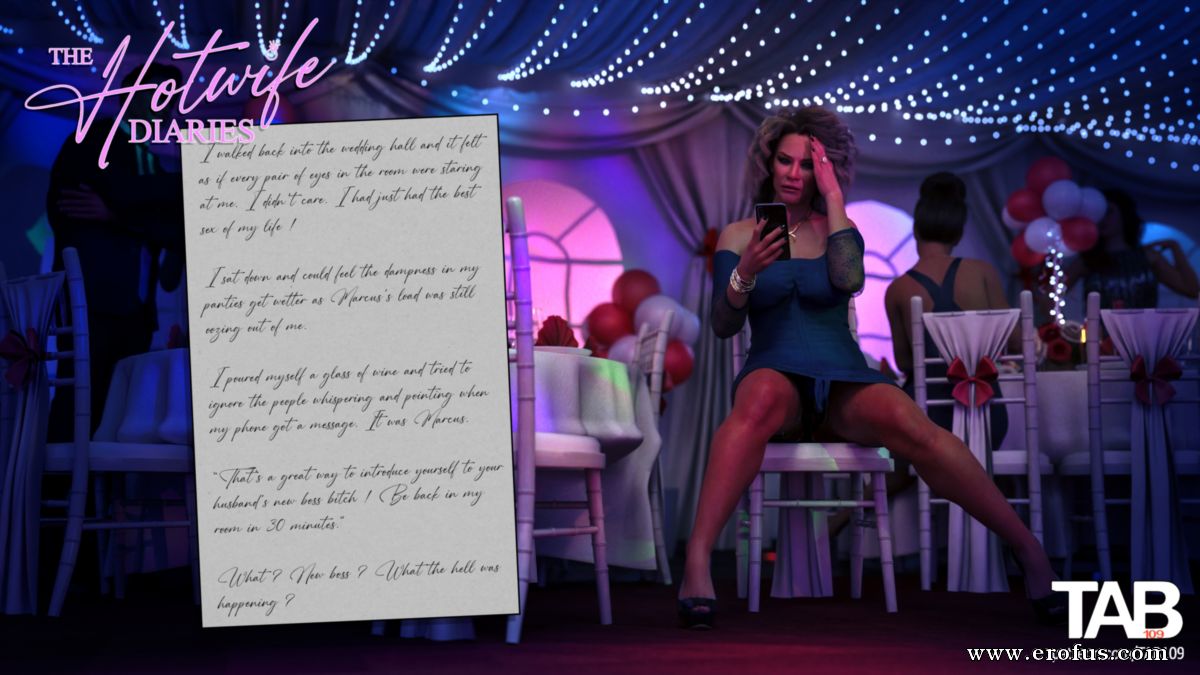 THE
Hotwife
DIARIES
I walked back into the wedding hall and it felt
as if every pair of eyes in the room were staring
at me. I didn't care. I had just had the best
sex of my life !
I sat down and could feel the dampness in my
panties get wetter as Marcus's load was still
oozing out of me.
I poured myself a glass of wine and tried to
ignore the people whispering and pointing when
my phone got a message. It was Marcus.
"That's a great way to introduce yourself to your
husband's new boss bitch ! Be back in my
room in 30 minutes."
What ? New boss ? What the hell was
happening ?
TAB
109
www.erofus.com